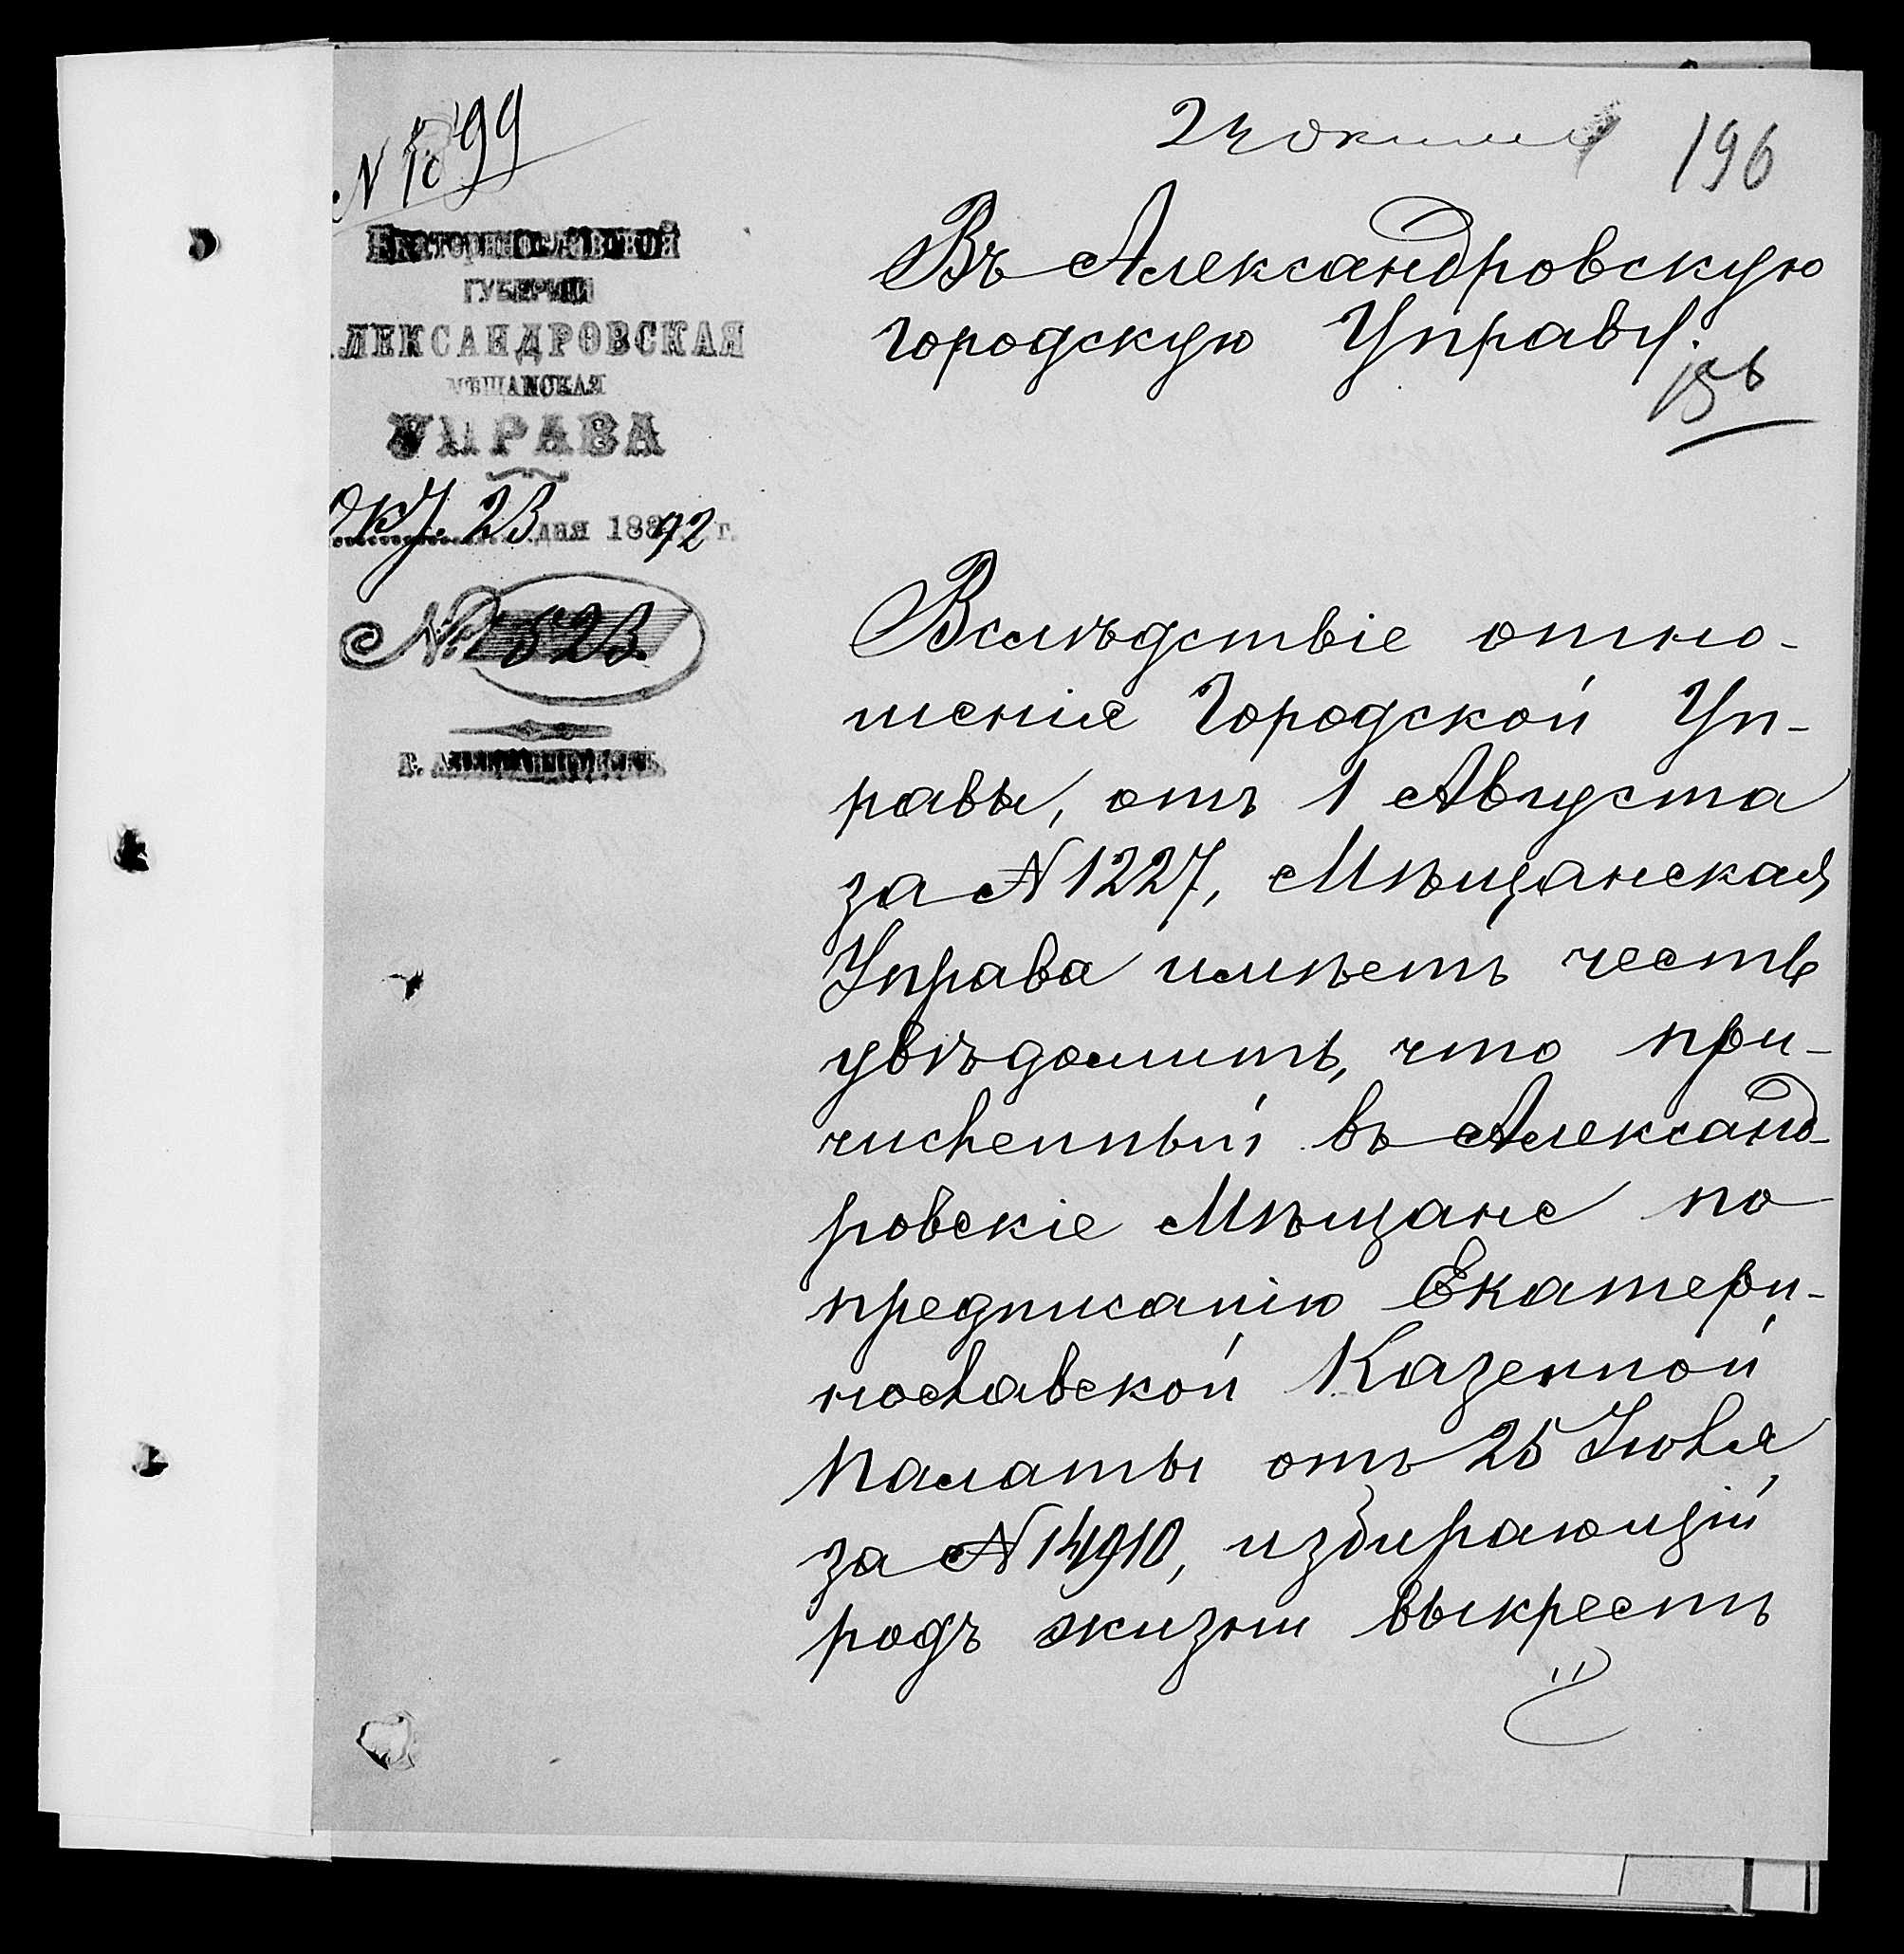 196
Екатеринославской
ГУБЕРНІИ
АЛЕКСАНДРОВСКАЯ
МѢЩАНСКАЯ
УПРАВА
Окт. 23 дня 1892 г.
№ 523.
Въ Александровскую
Городскую Управу.
Вслѣдствіе отно-
шенія Городской Уп-
равы, отъ 1 Августа
за № 1227, Мѣщанская
Управа имѣетъ честь
увѣдомить, что при-
численный въ Александ-
ровскіе Мѣщане по
предписанію Екатери-
нославской Казенной
Палаты отъ 25 Іюля
за № 14910, избирающій
родъ жизни выкрестъ